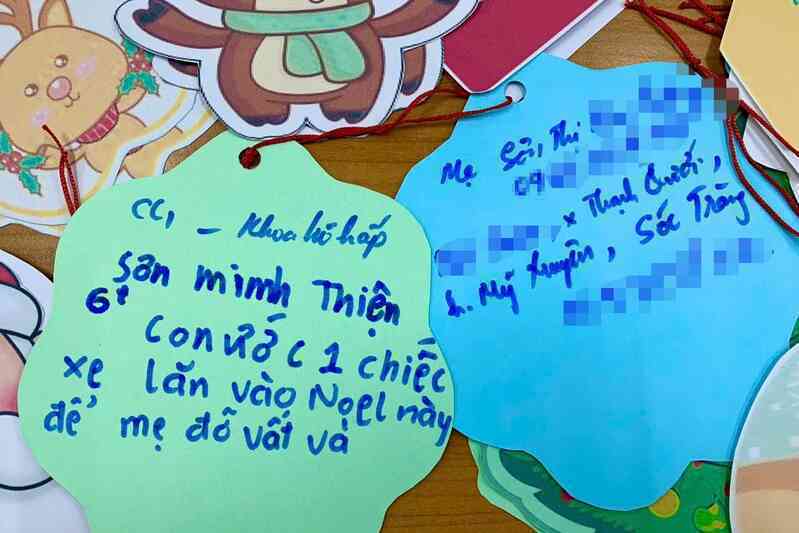 CC1 - Khoa hô hấp
Sơn minh Thiện
6t
Con ước 1 chiếc
xe lăn vào Noel này
để mẹ đỡ vất vả
Mẹ Sơn Thị
09
x Thạnh Quới,
h. Mỹ Xuyên, Sóc Trăng